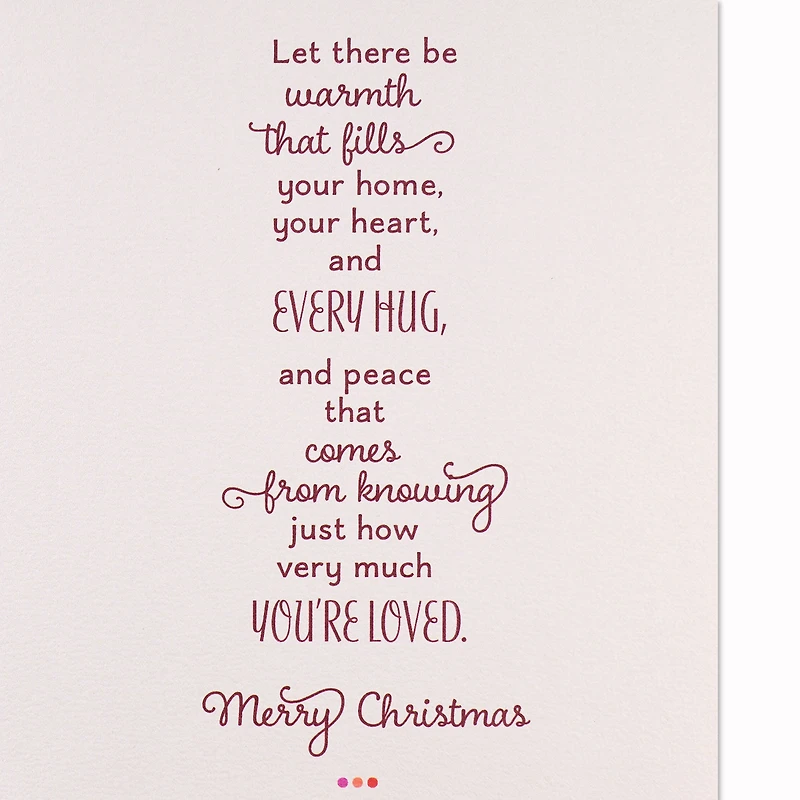 Let there be
warmth
that fills
your home,
your heart,
and
EVERY HUG,
and peace
that
comes
from knowing
just how
very much
YOU'RE LOVED.
Merry Christmas